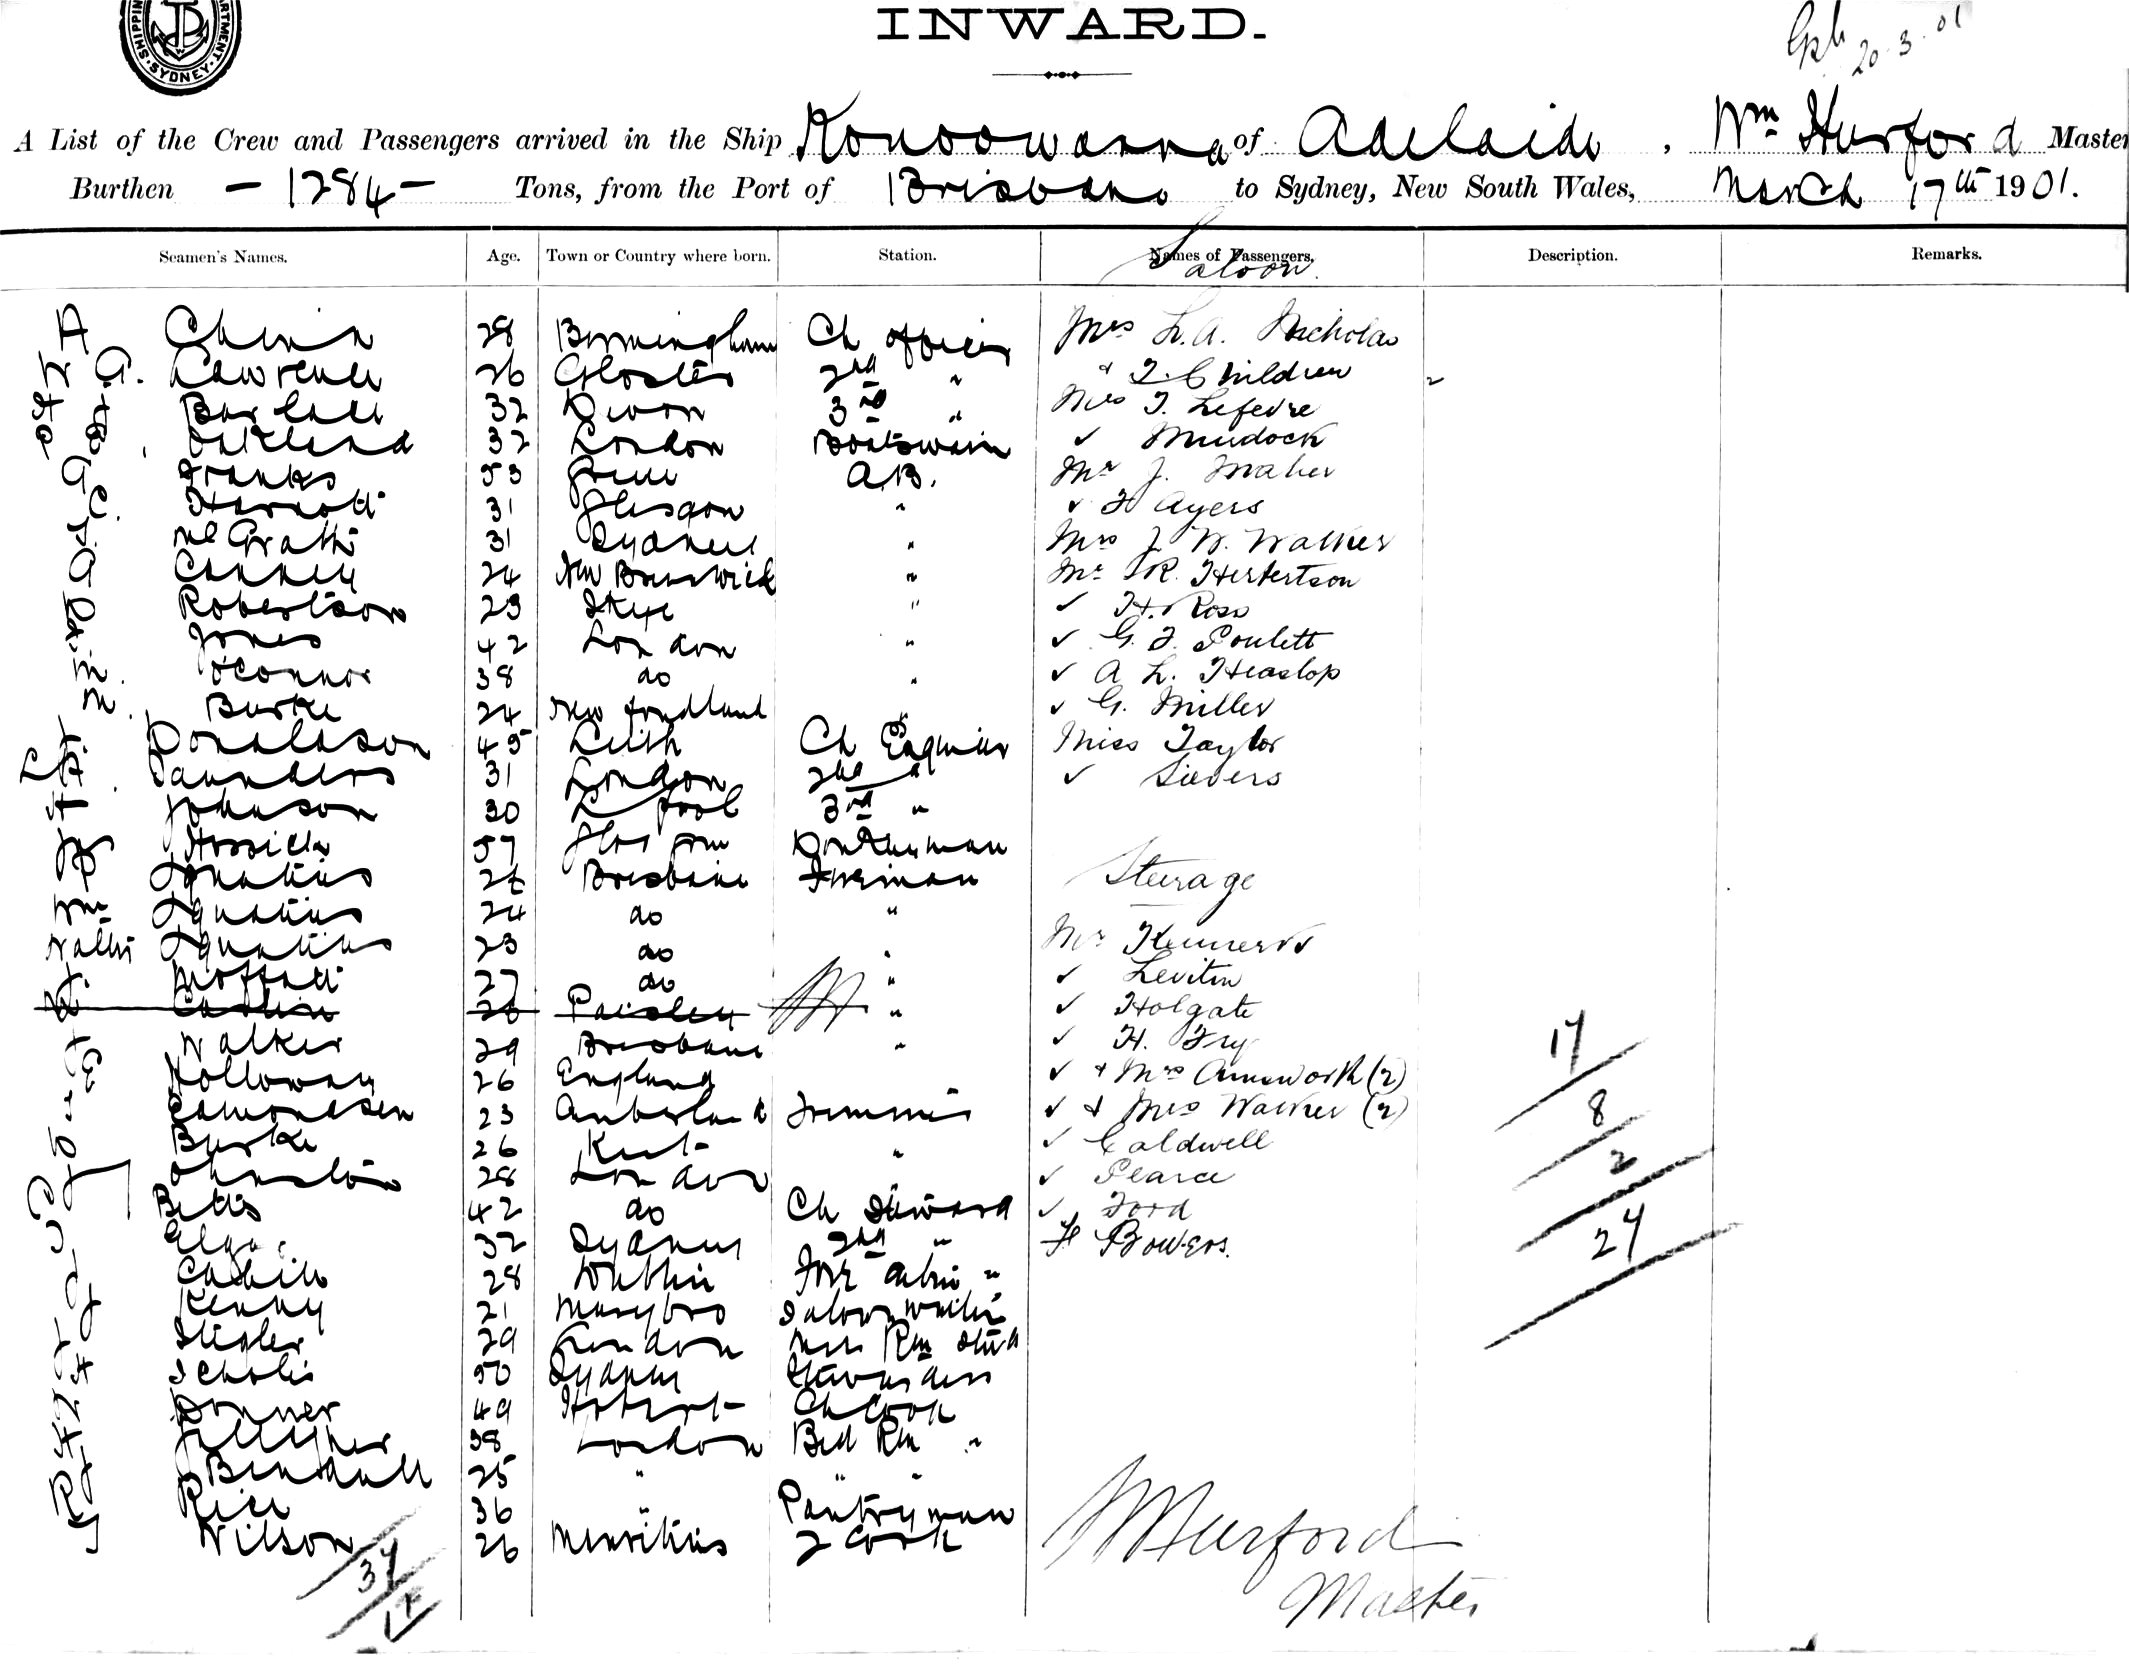 SHIPPING DEPARTMENT. SYDNEY.
INWARD.
20.3.01
A List of the Crew and Passengers arrived in the Ship Konoowarra of Adelaide, Wm Hurford Master
Burthen - 1284 - Tons, from the Port of Brisbane to Sydney, New South Wales, March 17th 1901.
Seamen's Names. Age. Town or Country where born. Station. Names of Passengers. Description. Remarks.
Saloon.
28 Birmingham Ch Officer Mrs L.A. Nicholas
G. Lawrence 26 Gloster 2nd " " Children 2
32 Devon 3rd " Mrs T. Lefevre
32 London Boatswain ✓ Murdock
Franks 53 A.B. Mr J. Maher
31 Glasgow " ✓ Ayers
McGrath 31 Sydney " Mrs J W. Walker
24 New Brunswick " Mr R. Herbertson
Robertson 23 Skye " ✓ H. Ross
Jones 42 London " ✓ G. F. Poulett
M. O'Connor 38 do " ✓ A L. Heaslop
M. Burke 24 New Foundland " ✓ G. Miller
Donaldson 45 Leith Ch Engineer Miss Taylor
Saunders 31 London 2nd " ✓ Sievers
Johnson 30 L'pool 3rd "
57 Glasgow Donkeyman
Ignatius 26 Brisbane Fireman Steerage
Wm Ignatius 24 do "
Walter Ignatius 23 do " Mr
Moffatt 27 do " ✓ Levitin
26 Paisley " ✓ Holgate
Walker 29 Brisbane " ✓ H. Fry 17
Holloway 26 England ✓ + Mrs Ainsworth (2)
Edmondsen 23 Cumberland Trimmer ✓ + Mrs Walker (2) 8
Burke 26 Kent " ✓ Caldwell 2
Johnston 28 London ✓ Pearce
Betts 42 do Ch Steward ✓ Ford
Elgar 32 Sydney 2nd " F Bowers. 27
28 Dublin Fore Cabin "
Kenny 21 Maryboro Saloon waiter
Stigler 29 London Mess Rm Stwd
Scholes 50 Sydney Stewardess
49 Hobart Ch Cook
38 London Bed Rm "
25 " " "
Rice 36 " Pantryman
Wilson 26 Mauritius 2 Cook
37
W Hurford
Master